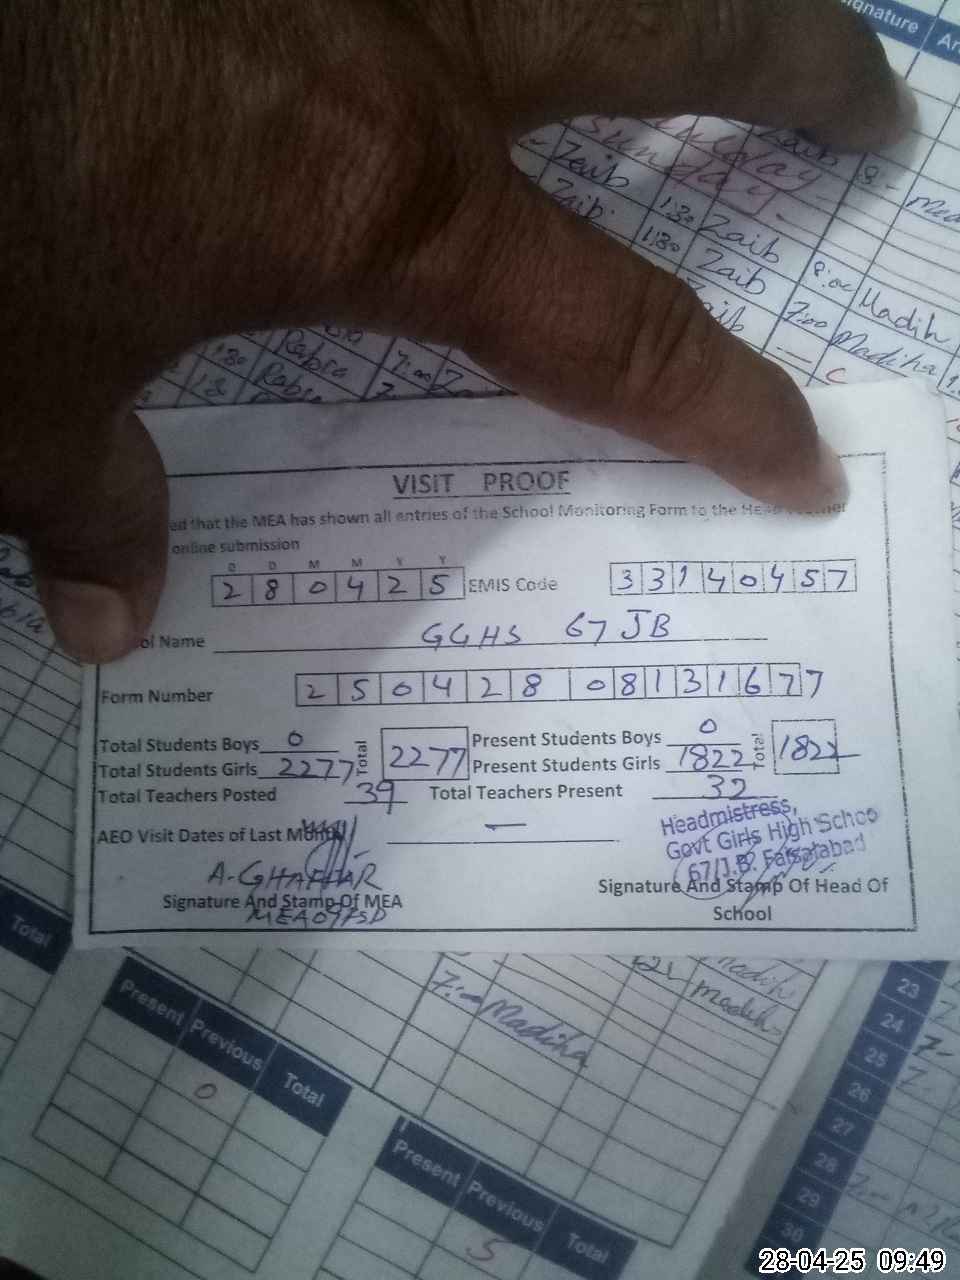 gnature
Sunday
Zaib
8:-
Zaib
1:30 Zaib
1:30 Zaib
8:00 Madih
7:00 Madiha
C
1:30 Rabia 7:00
Rabia
VISIT PROOF
ed that the MEA has shown all entries of the School Monitoring Form to the He
online submission
D D M M Y Y
2 8 0 4 2 5 EMIS Code 3 3 1 4 0 4 5 7
ol Name GGHS 67 JB
Form Number 2 5 0 4 2 8 0 8 1 3 1 6 7 7
Total Students Boys 0 Total 2277 Present Students Boys 0 Total 1822
Total Students Girls 2277 Present Students Girls 1822
Total Teachers Posted 39 Total Teachers Present 32
AEO Visit Dates of Last Month —
Headmistress,
Govt Girls High Schoo
67/J.B. Faisalabad
A-GHAFFAR
Signature And Stamp Of MEA
MEA 09 FSD
Signature And Stamp Of Head Of
School
Total
Madih
7:00 Madiha
Present Previous Total
0
Present Previous Total
5
23
24
25
26
27
28
29
30
28-04-25 09:49